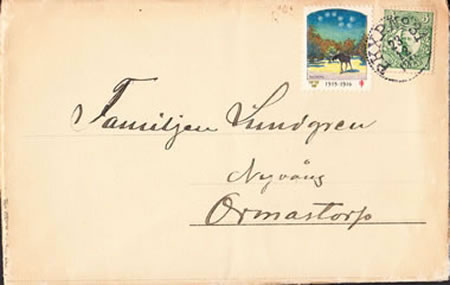 1915-1916
5
Familjen Lundgren
Nyvång
Ormastorp